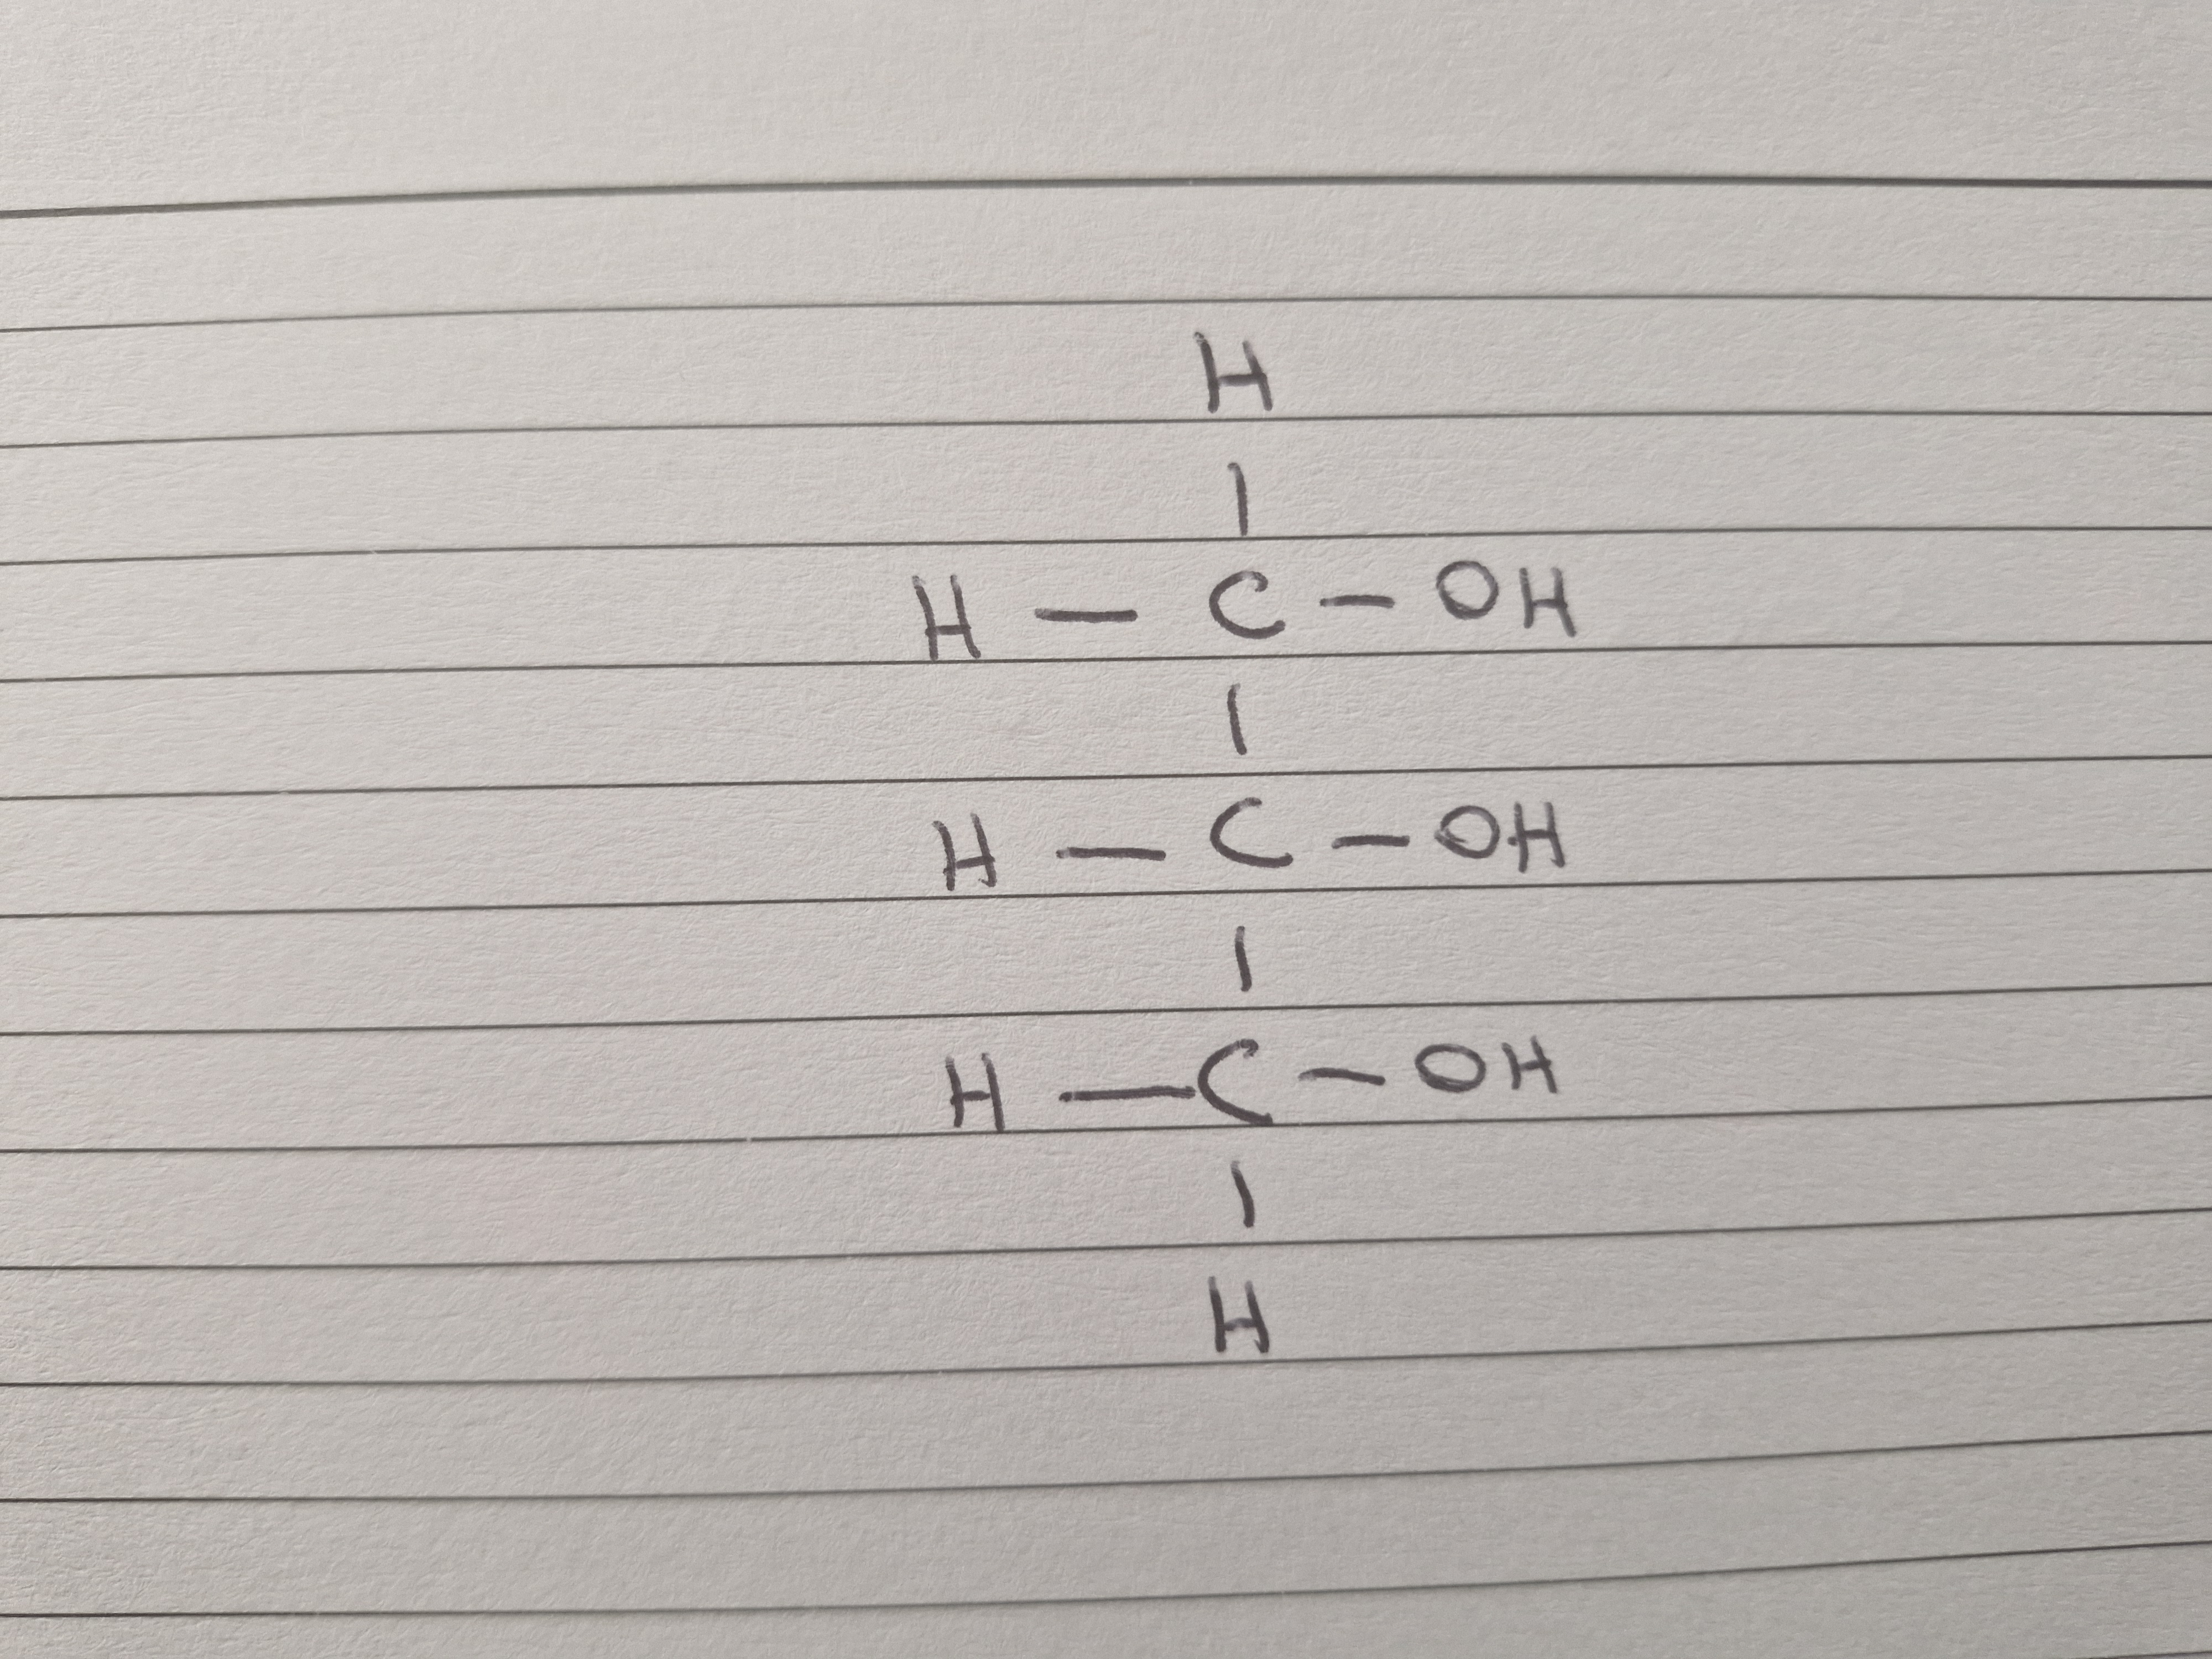 H
|
H — C — OH
|
H — C — OH
|
H — C — OH
|
H